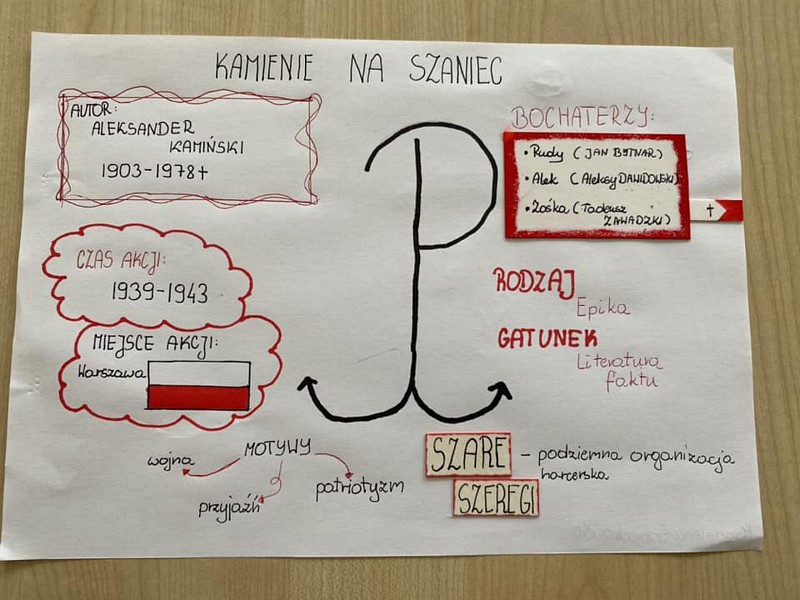 KAMIENIE NA SZANIEC
AUTOR:
ALEKSANDER
KAMIŃSKI
1903-1978✝
BOCHATERZY:
• Rudy (JAN BYTNAR)
• Alek (Aleksy DAWIDOWSKI)
• Zośka (Tadeusz
ZAWADZKI)
✝
CZAS AKCJI:
1939-1943
MIEJSCE AKCJI:
Warszawa
RODZAJ
Epika
GATUNEK
Literatura
faktu
MOTYWY
wojna
przyjaźń
patriotyzm
SZARE
SZEREGI
- podziemna organizacja
harcerska